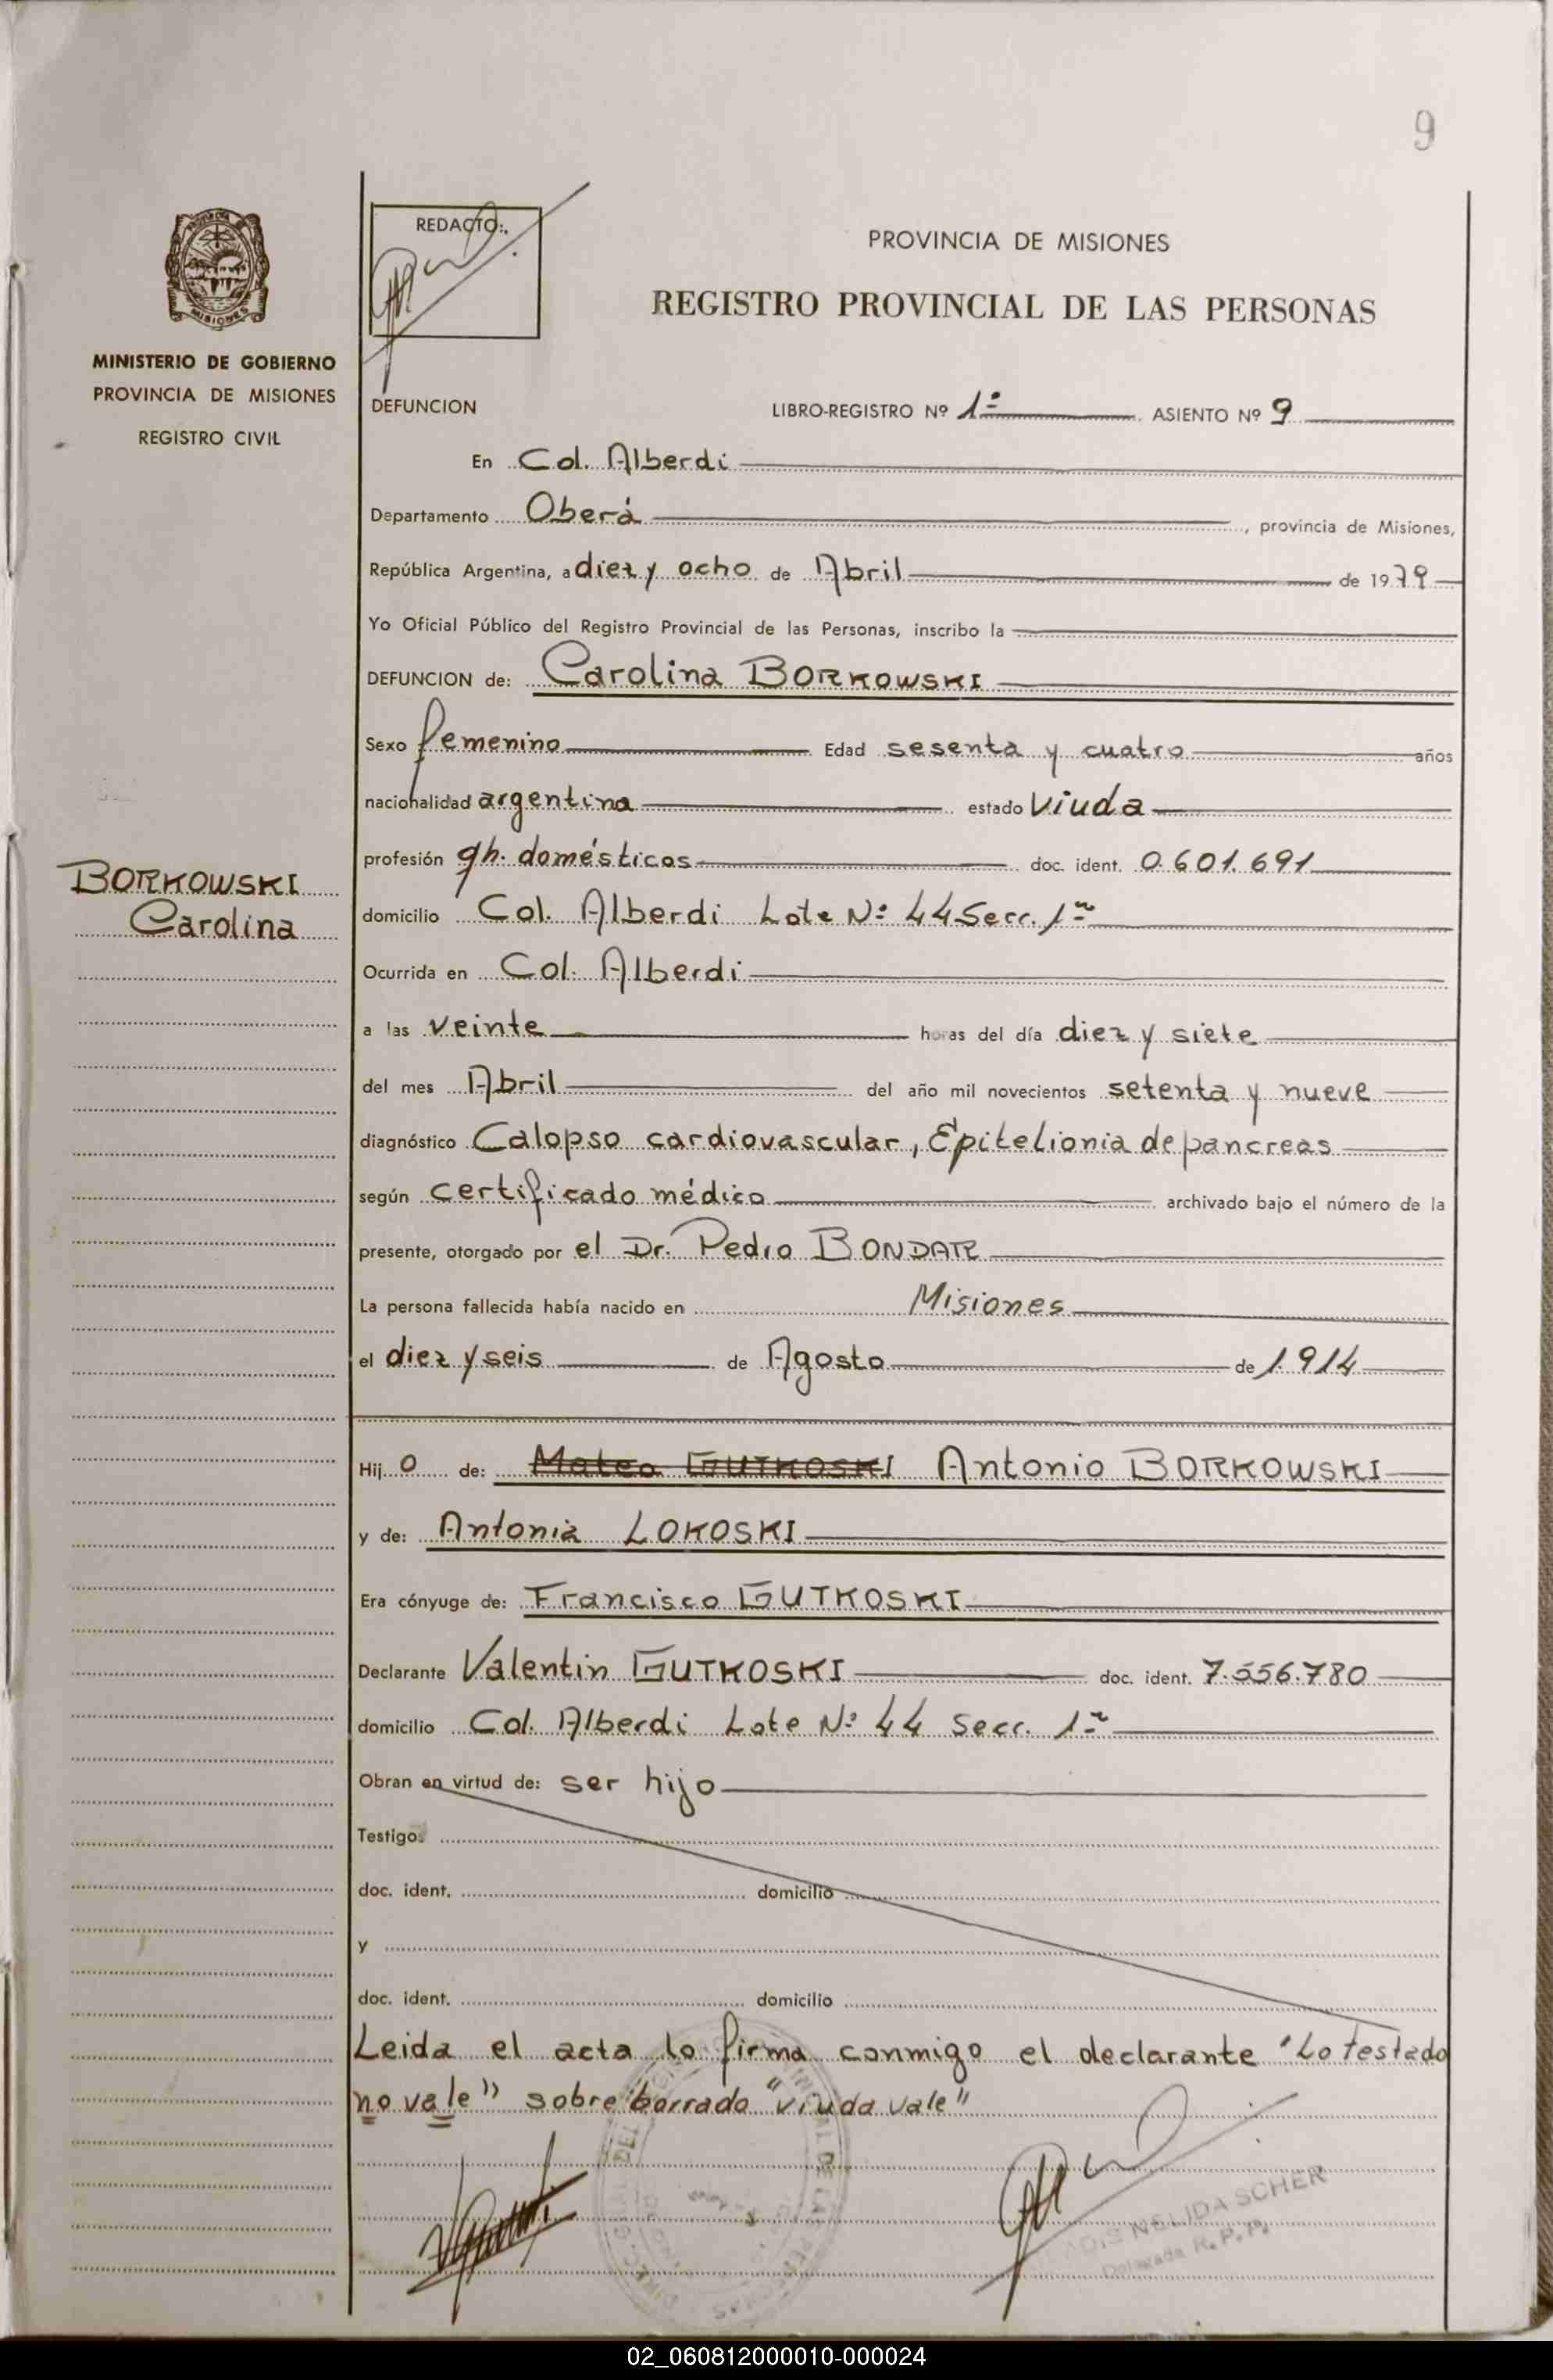 9
REDACTO:
PROVINCIA DE MISIONES
REGISTRO PROVINCIAL DE LAS PERSONAS
MINISTERIO DE GOBIERNO
PROVINCIA DE MISIONES
REGISTRO CIVIL
DEFUNCION LIBRO-REGISTRO Nº 1º ASIENTO Nº 9
En Col. Alberdi
Departamento Oberá, provincia de Misiones,
República Argentina, a diez y ocho de Abril de 1979
Yo Oficial Público del Registro Provincial de las Personas, inscribo la
DEFUNCION de: Carolina BORKOWSKI
Sexo femenino Edad sesenta y cuatro años
nacionalidad argentina estado viuda
profesión qh. domésticos doc. ident. 0.601.691
BORKOWSKI
Carolina
domicilio Col. Alberdi Lote Nº 44 Secc. 1ª
Ocurrida en Col. Alberdi
a las veinte horas del día diez y siete
del mes Abril del año mil novecientos setenta y nueve
diagnóstico Calopso cardiovascular, Epitelionia de pancreas
según certificado médico archivado bajo el número de la
presente, otorgado por el Dr. Pedro BONDAR
La persona fallecida había nacido en Misiones
el diez y seis de Agosto de 1.914
Hij o de: Mateo GUTKOSKI Antonio BORKOWSKI
y de: Antonia LOKOSKI
Era cónyuge de: Francisco GUTKOSKI
Declarante Valentin GUTKOSKI doc. ident. 7.556.780
domicilio Col. Alberdi Lote Nº 44 Secc. 1ª
Obran en virtud de: ser hijo
Testigo:
doc. ident. domicilio
y
doc. ident. domicilio
Leida el acta lo firma conmigo el declarante "Lo testado
no vale" sobre borrado "viuda vale"
NELIDA SCHER
R.P.P.
02_060812000010-000024